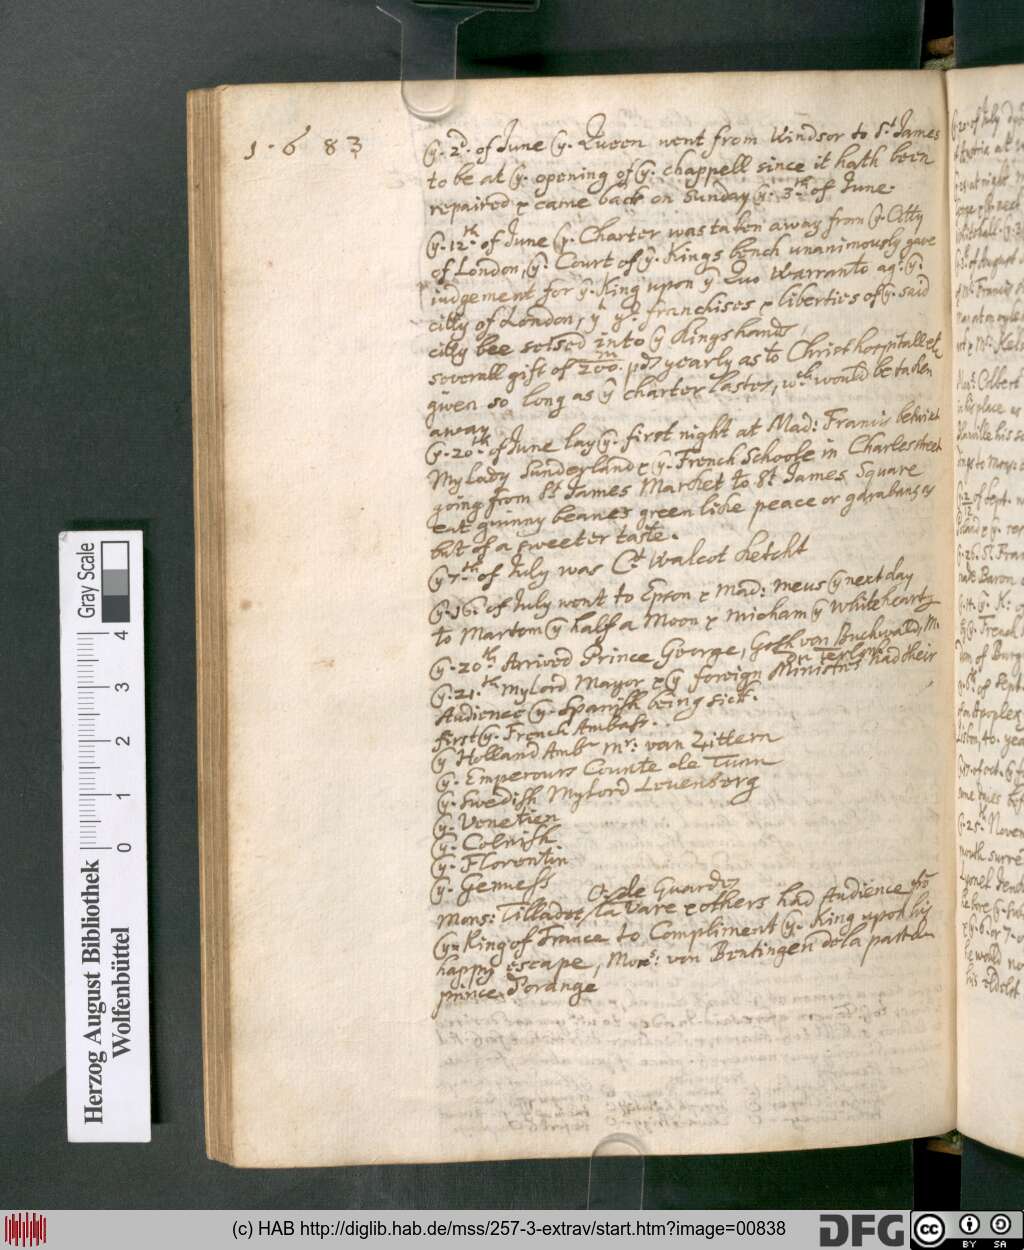 1683
ye. 2d. of June ye. Queen went from Windsor to St James
to be at ye. opening of ye. chappell since it hath been
repaired & came back on Sunday ye. 3th. of June.
ye. 12th. of June ye. Charter was taken away from ye. Citty
of London, ye. Court of ye. Kings bench unanimously gave
iudgement for ye. King upon ye Quo Warranto ag: ye.
citty of London, yt ye. franchises & liberties of ye. said
citty bee seised into ye Kings hands,
severall gift of 200. pds yearly as to Christ hospitall etc
given so long as ye charter lastes, wch would be taken
away
ye. 20th. of June lay ye. first night at Mad: Francis betwixt
My lady Sunderland & ye. French Schoole in Charles street
going from St James Market to St James Square
eat guinny beanes green like peace or garabanzes
but of a sweeter taste.
ye 7th. of July was Ct Walcot ketcht
ye. 16. of July went to Epson & Mad: Meus ye next day
to Martom ye half a Moon & Micham ye White heart
ye. 20th. Arrived Prince George, von Buchwald, Mr
ye. 21th. My Lord Mayor & ye foreign Ministres had their
Audience ye. Spanish being sick.
first ye. French Ambassr.
ye Holland Ambr Mr: van Zittern
ye. Emperours Counte de Turn
ye. Swedish My Lord Leuenberg
ye. Venetien
ye. Colnish
ye. Florentin
ye. Genuess
C. de Guardes
Mons: Tilladet, la Vare & others had Audience fro
ye King of France to Compliment ye. King upon his
happy escape, Mons: von Bentingen de la part du
prince d'orange
Herzog August Bibliothek
Wolfenbüttel
Gray Scale
0 1 2 3 4
(c) HAB http://diglib.hab.de/mss/257-3-extrav/start.htm?image=00838
DFG
cc BY SA